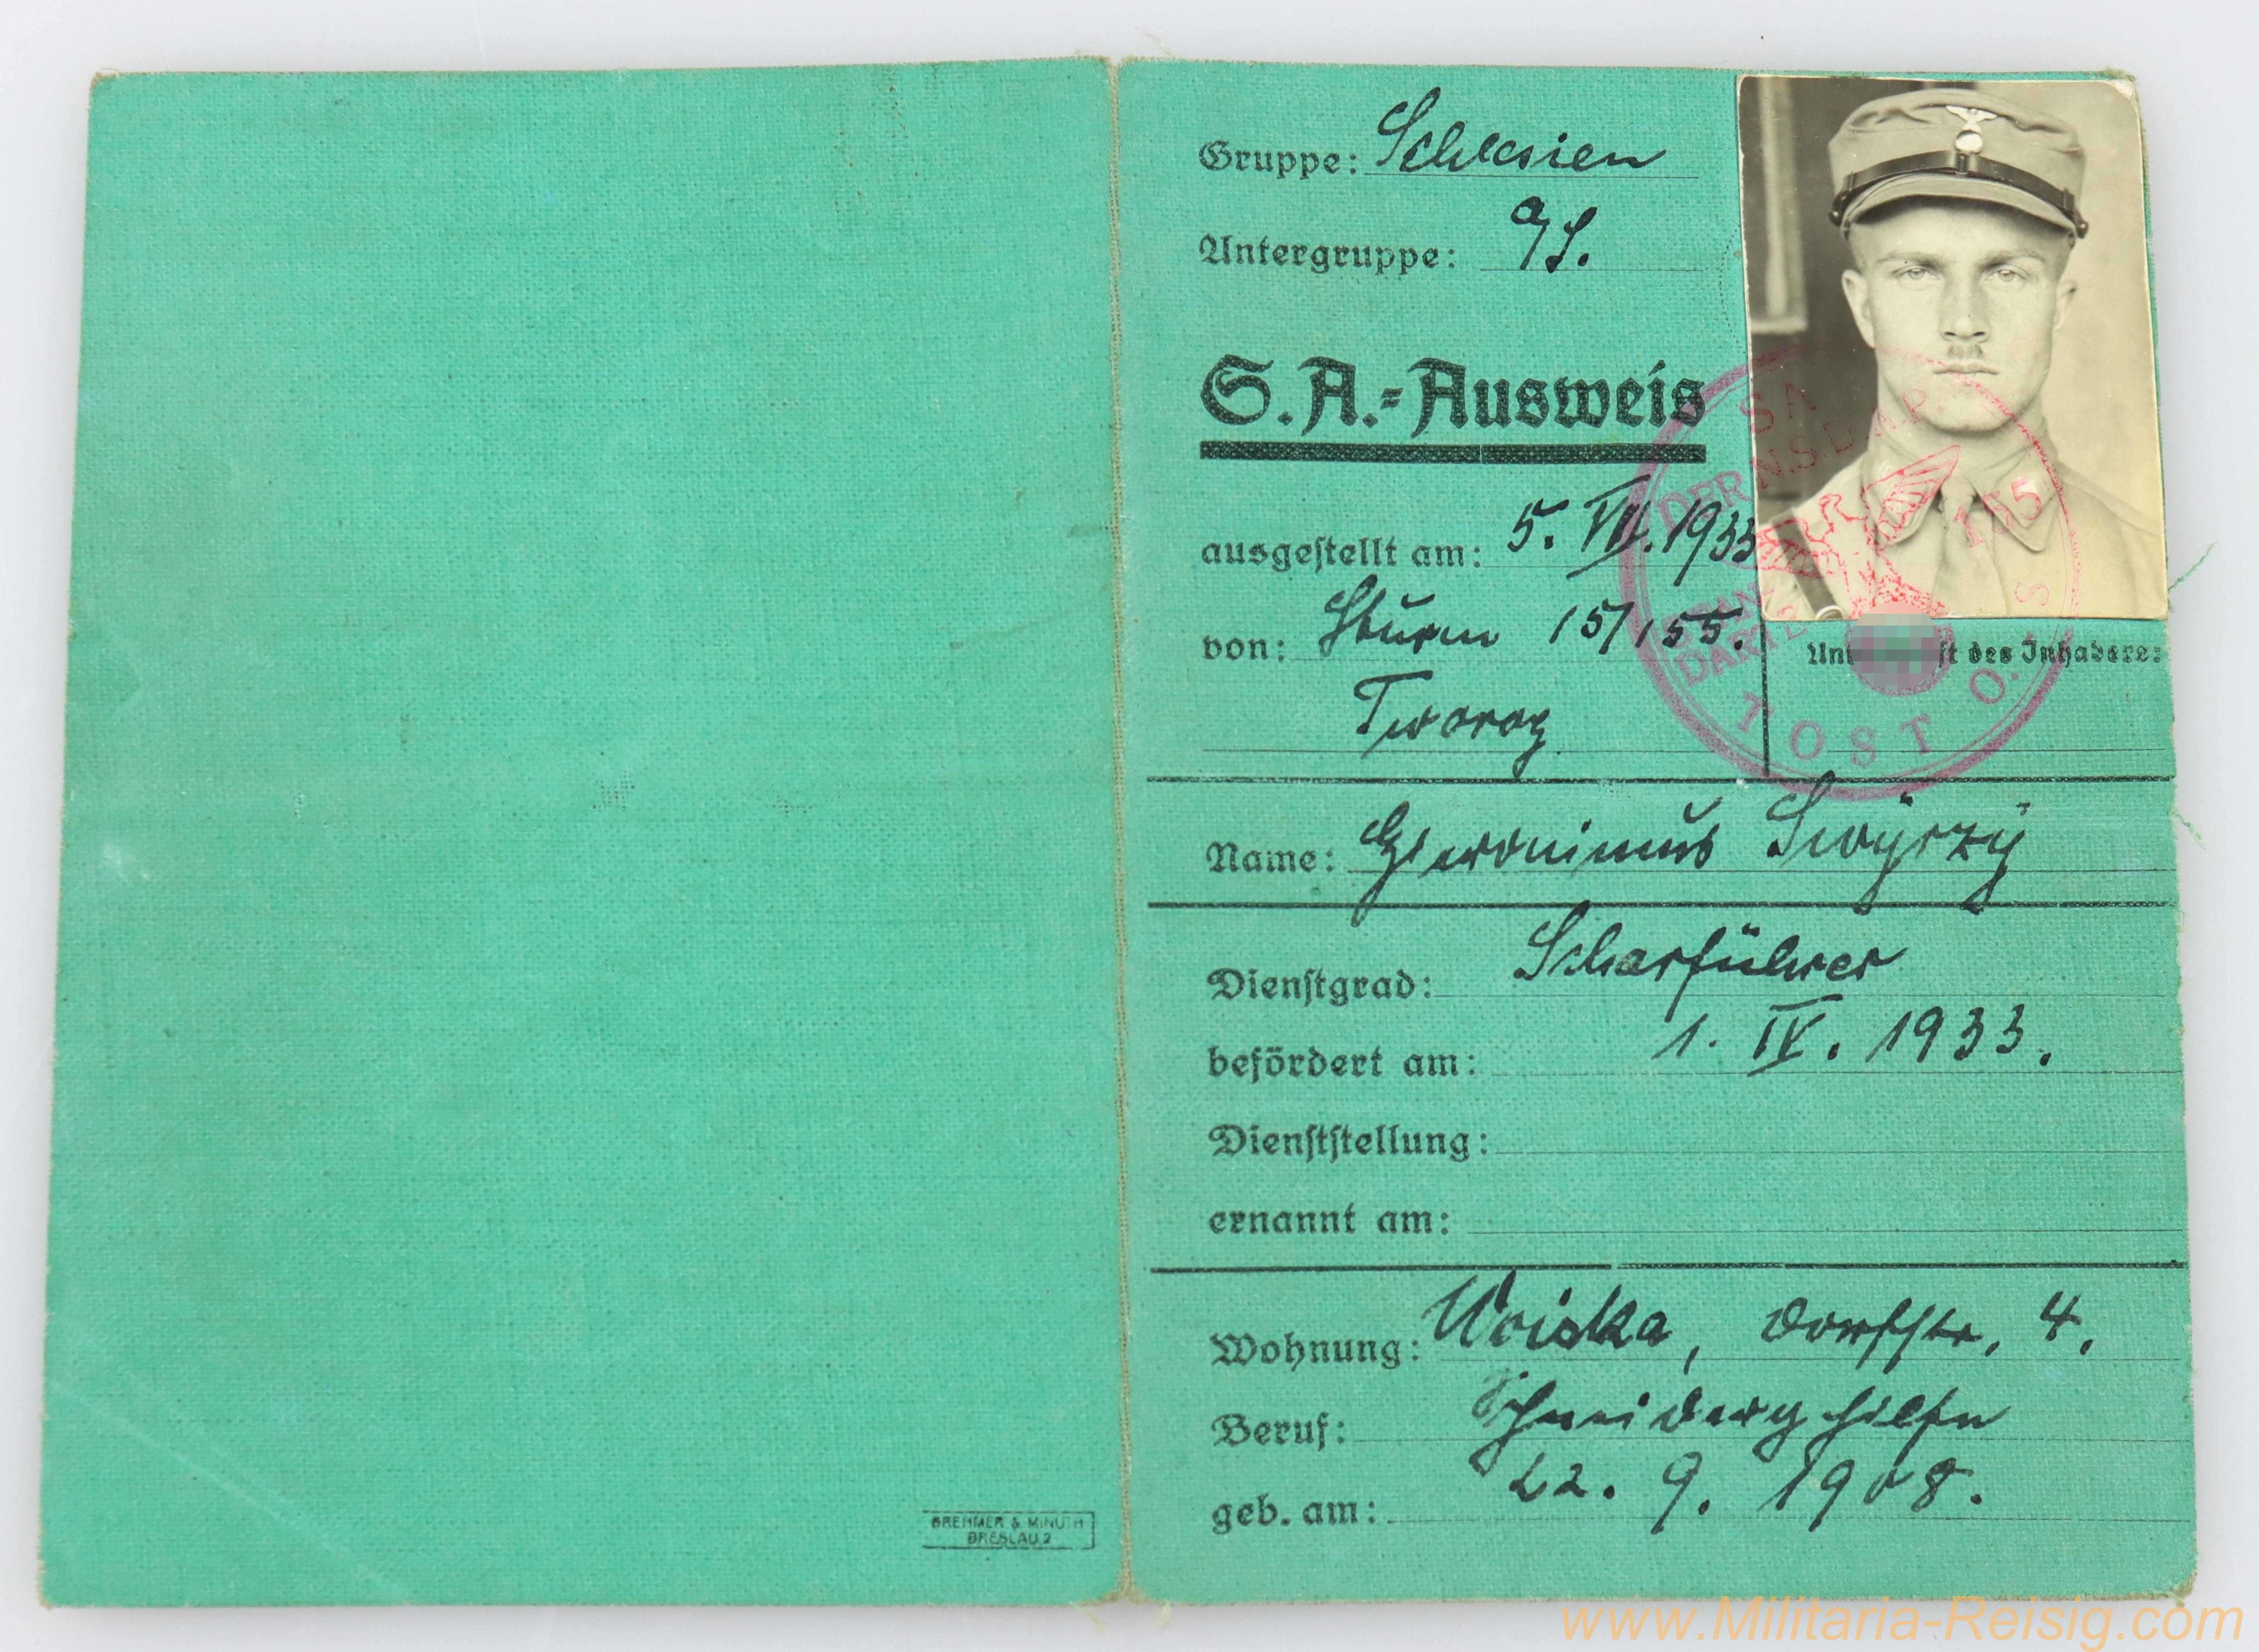 Gruppe: Schlesien
Untergruppe:
S.A.-Ausweis
ausgestellt am: 5. VII. 1933
von: Sturm 15/155.
Tworog
SA
DER N.S.D.A.P.
155
TOST O.-S
des Inhabers:
Name: Hieronimus Swyrzy
Dienstgrad: Scharführer
befördert am: 1. IV. 1933.
Dienststellung:
ernannt am:
Wohnung: Woiska, Dorfstr. 4.
Beruf: Schneidergehilfe
geb. am: 22. 9. 1908.
BREHMER & MINUTH
BRESLAU 2
www.Militaria-Reisig.com